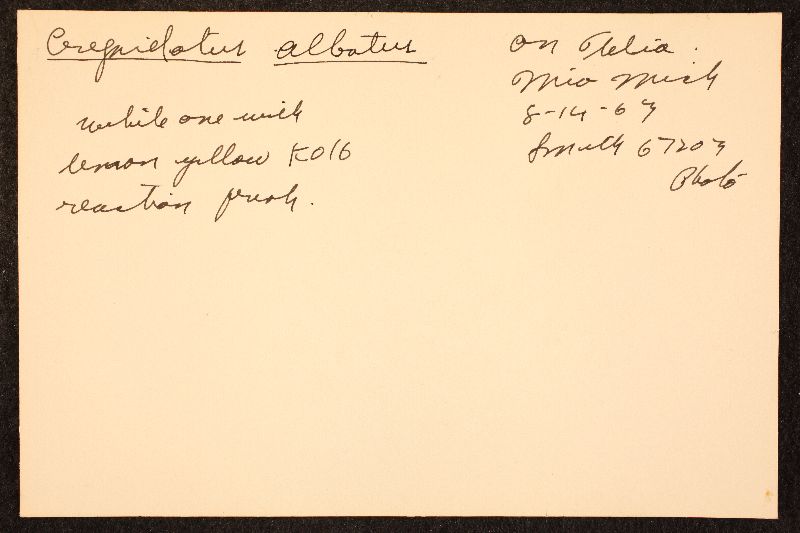 Crepidotus albatus
on Tilia.
Mio Mich
8-14-63
Smith 67207
Photo
white one with
lemon yellow KOH
reaction fresh.